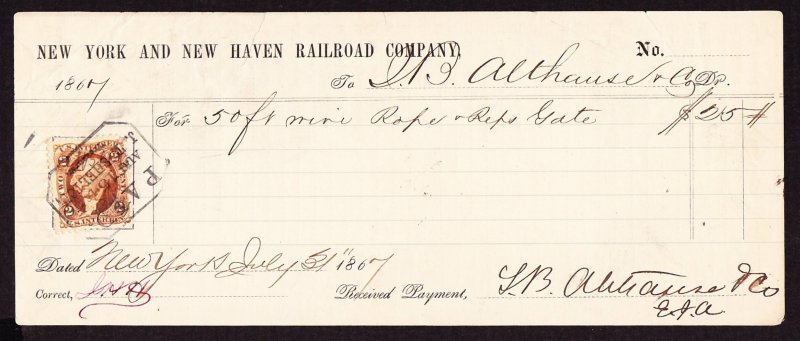 NEW YORK AND NEW HAVEN RAILROAD COMPANY, No.
1867 To S.B. Althause & Co Dr.
For 50 ft wire Rope & Reps Gate $25
PAID
AUG
U.S. INTER. REV.
2 2
Dated New York July 31" 1867
Correct, Received Payment, S.B. Althause & Co
E.J.A.